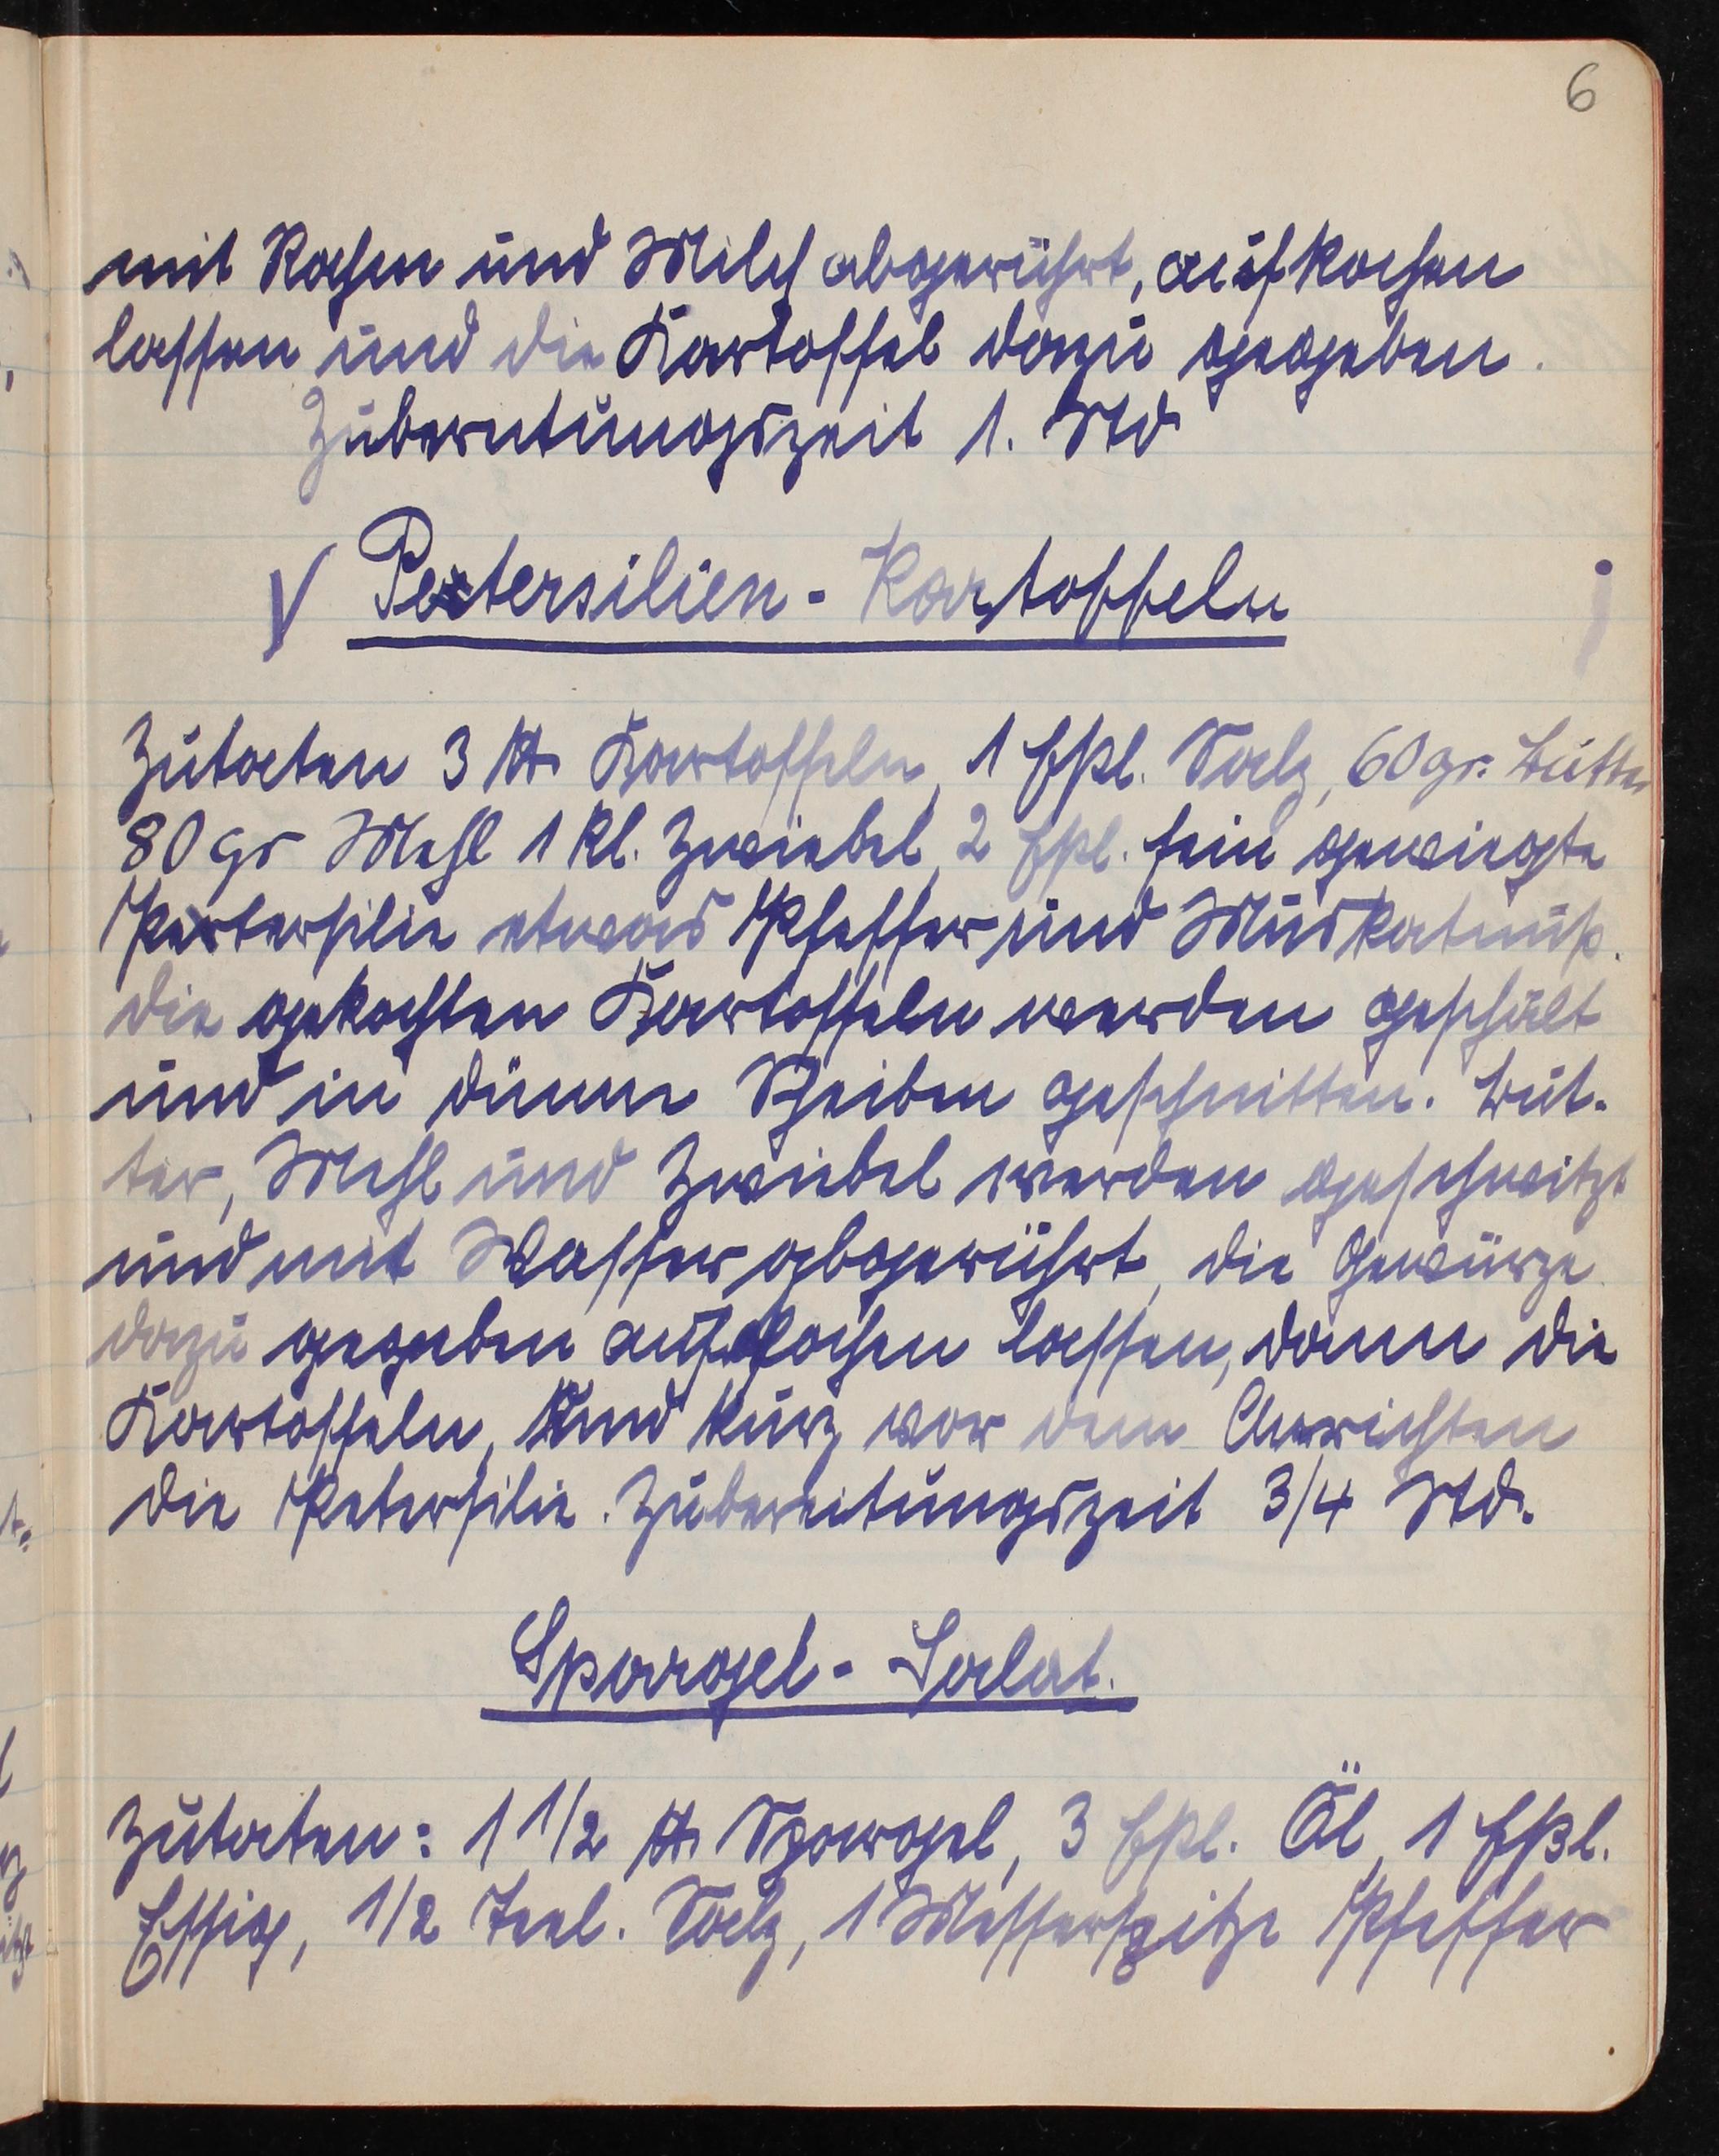 6
mit Rahm und Milch abgerührt, aufkochen
lassen und die Kartoffel dazu gegeben.
Zubereitungszeit 1. Std
V Petersilien - Kartoffeln
Zutaten 3 ℔ Kartoffeln, 1 Eßl. Salz, 60 gr. Butter
80 gr Mehl 1 kl. Zwiebel, 2 Eßl. fein gewiegte
Petersilie etwas Pfeffer und Muskatnuß.
die gekochten Kartoffeln werden geschält
und in dünne Scheiben geschnitten. But-
ter, Mehl und Zwiebel werden geschwitzt
und mit Wasser abgerührt, die Gewürze
dazu gegeben aufkochen lassen, dann die
Kartoffeln, und kurz vor dem Anrichten
die Petersilie. Zubereitungszeit 3/4 Std.
Spargel - Salat.
Zutaten: 1 1/2 ℔ Spargel, 3 Eßl. Öl, 1 Eßl.
Essig, 1/2 Teel. Salz, 1 Messerspitze Pfeffer